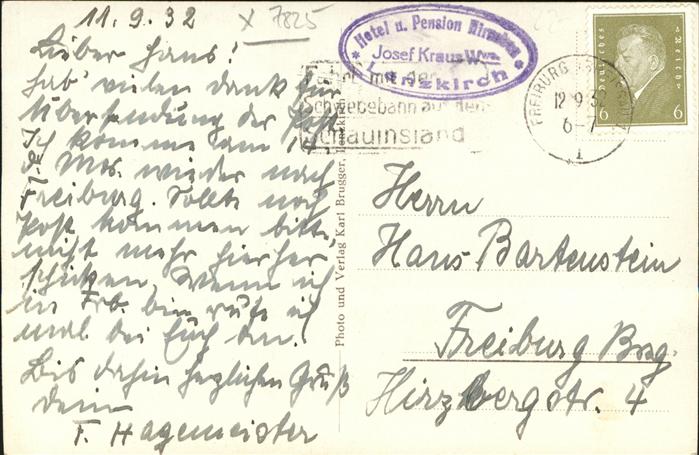 11.9.32
x 7825
Lieber Hans!
Hab' vielen Dank für
Übersendung der Post
Ich komme am 14.
d. Mos. wieder nach
Freiburg. Sollte noch
Post kommen bitte
nicht mehr hierher
schicken. Wenn ich
in Frb. bin rufe ich
mal bei Euch an!
Bis dahin herzlichen Gruß
dein
F. Hagemeister
Hotel u. Pension Hirschen
Josef Kraus Wwe.
Lenzkirch
mit der
Schwebebahn auf den
Schauinsland
FREIBURG
12.9.3
6-7
1
Deutsches Reich
6 6
Photo und Verlag Karl Brugger, Lenzkirch
Herrn
Hans Bartenstein
Freiburg Brsg.
Hirzbergstr. 4